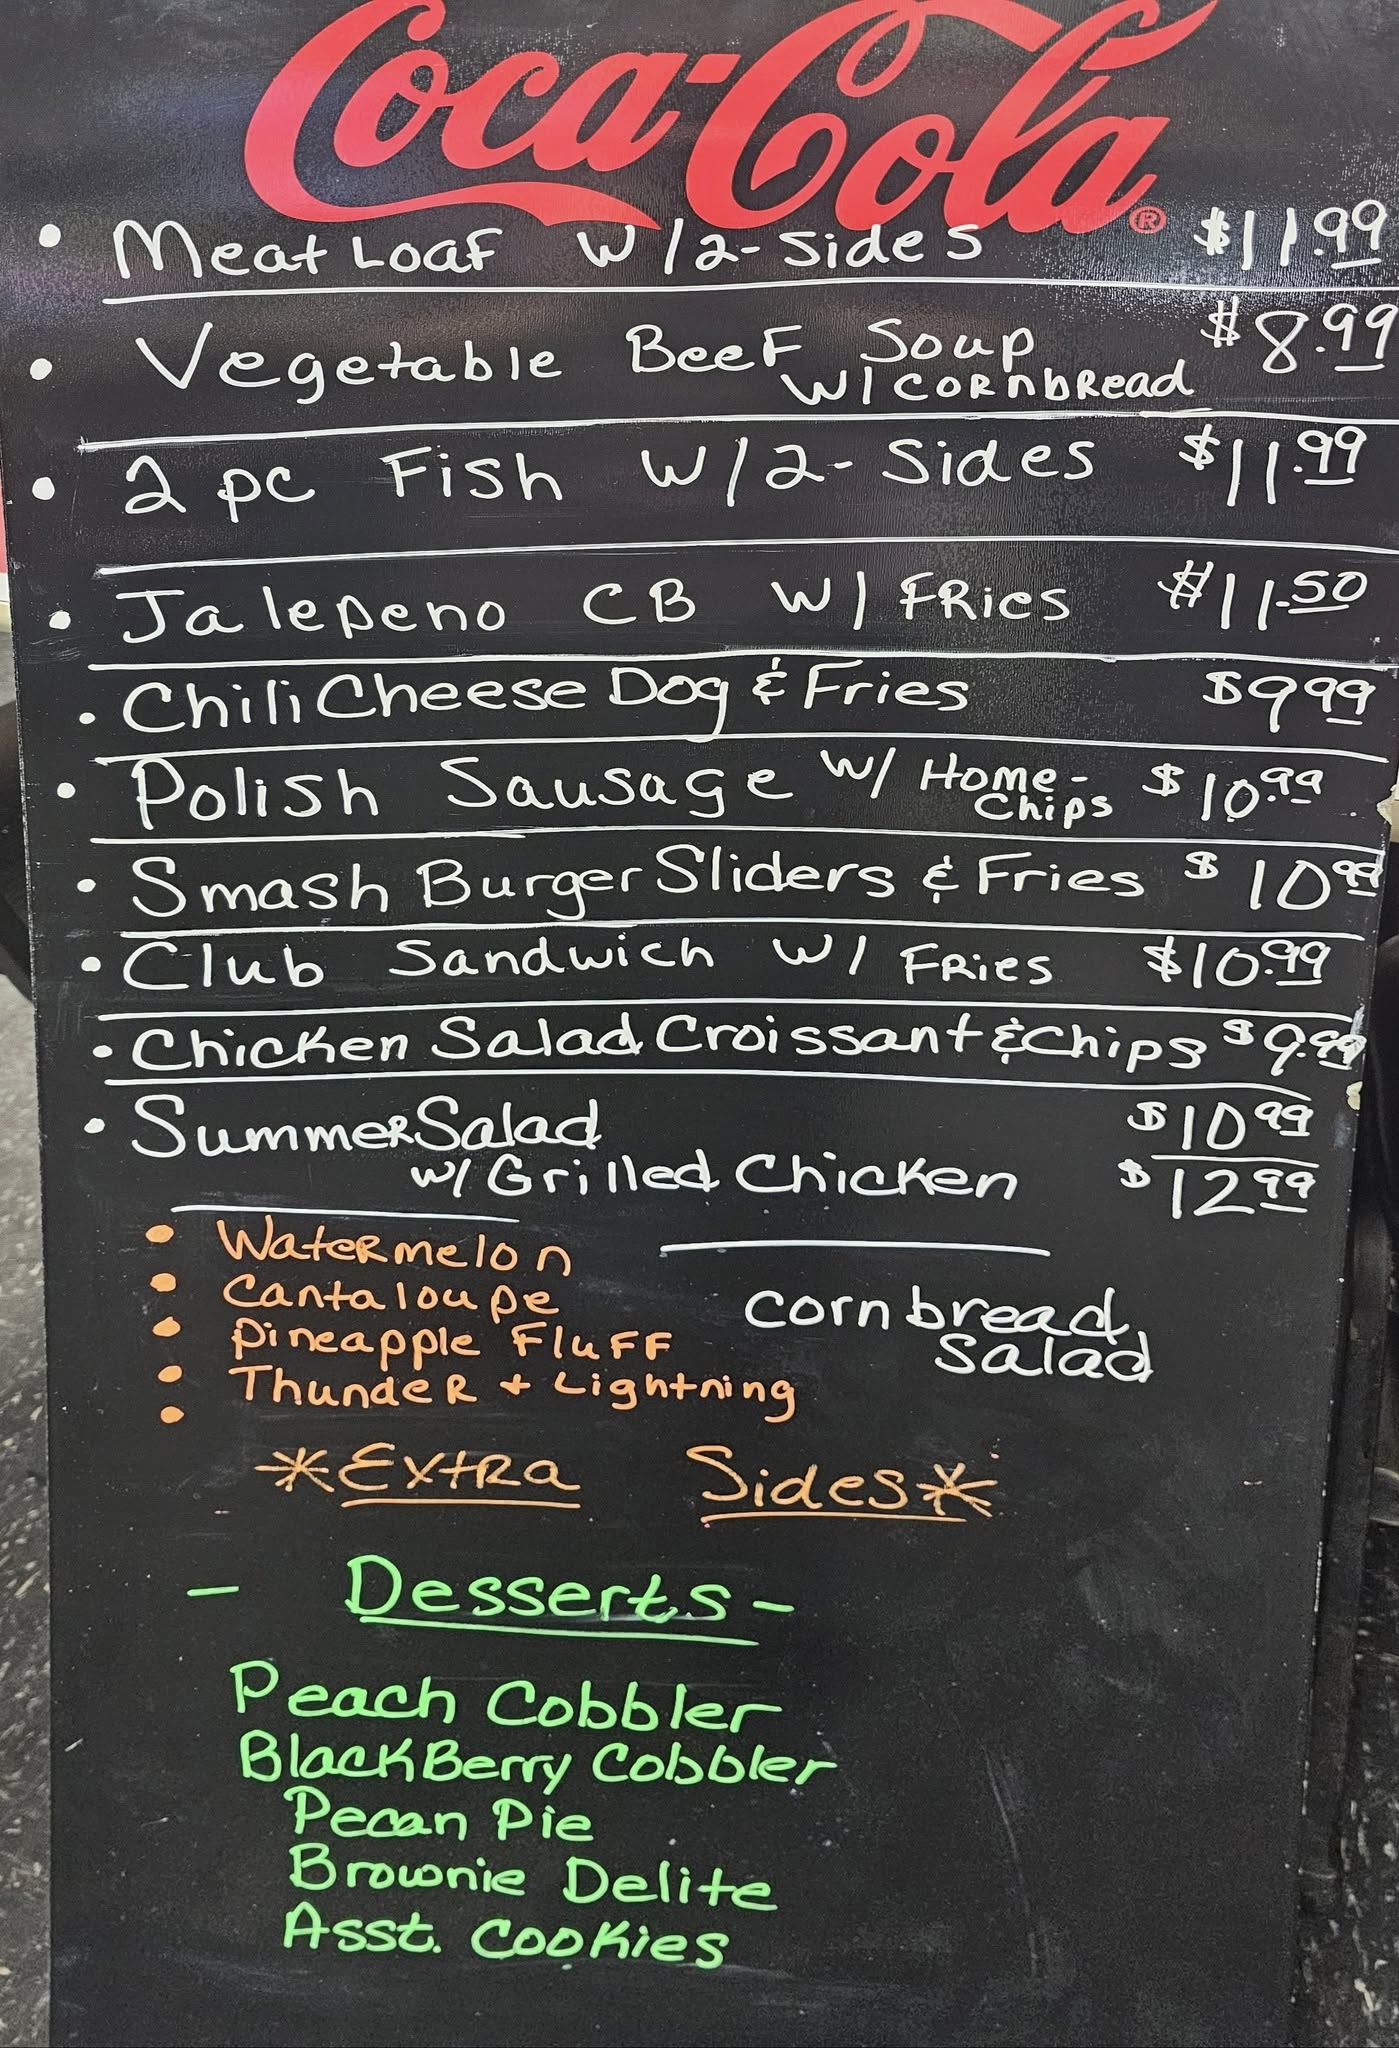 Coca-Cola®
• Meat Loaf w/2-Sides $11.99
• Vegetable Beef Soup $8.99
w/cornbread
• 2 pc Fish w/2-Sides $11.99
• Jalepeno CB w/ Fries $11.50
• Chili Cheese Dog & Fries $9.99
• Polish Sausage w/ Home- $10.99
Chips
• Smash Burger Sliders & Fries $10.99
• Club Sandwich w/ Fries $10.99
• Chicken Salad Croissant & Chips $9.99
• Summer Salad $10.99
w/ Grilled Chicken $12.99
• Watermelon
• Cantaloupe
• Pineapple Fluff
• Thunder + Lightning
•
cornbread
Salad
*Extra Sides*
- Desserts -
Peach Cobbler
BlackBerry Cobbler
Pecan Pie
Brownie Delite
Asst. Cookies